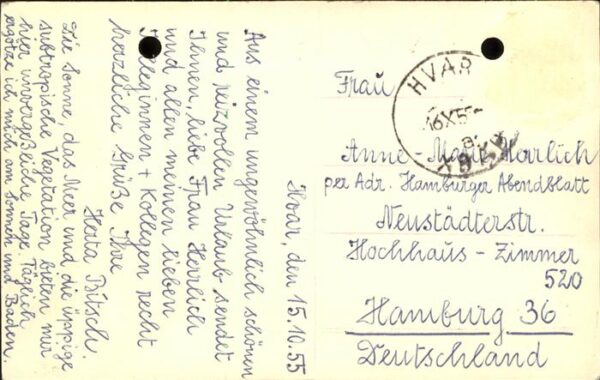 Hvar, den 15.10.55
Aus einem ungewöhnlich schönen
und reizvollen Urlaub sendet
Ihnen, liebe Frau
und allen meinen lieben
Kolleginnen + Kollegen recht
herzliche Grüße Ihre
Herta Bitsch.
Die Sonne, das Meer und die üppige
subtropische Vegetation bieten mir
hier unvergeßliche Tage. Täglich
ergötze ich mich am sonnen und Baden.
HVAR
Frau
Anne-Marie
per Adr. Hamburger Abendblatt
Neustädterstr.
Hochhaus - Zimmer
520
Hamburg 36
Deutschland